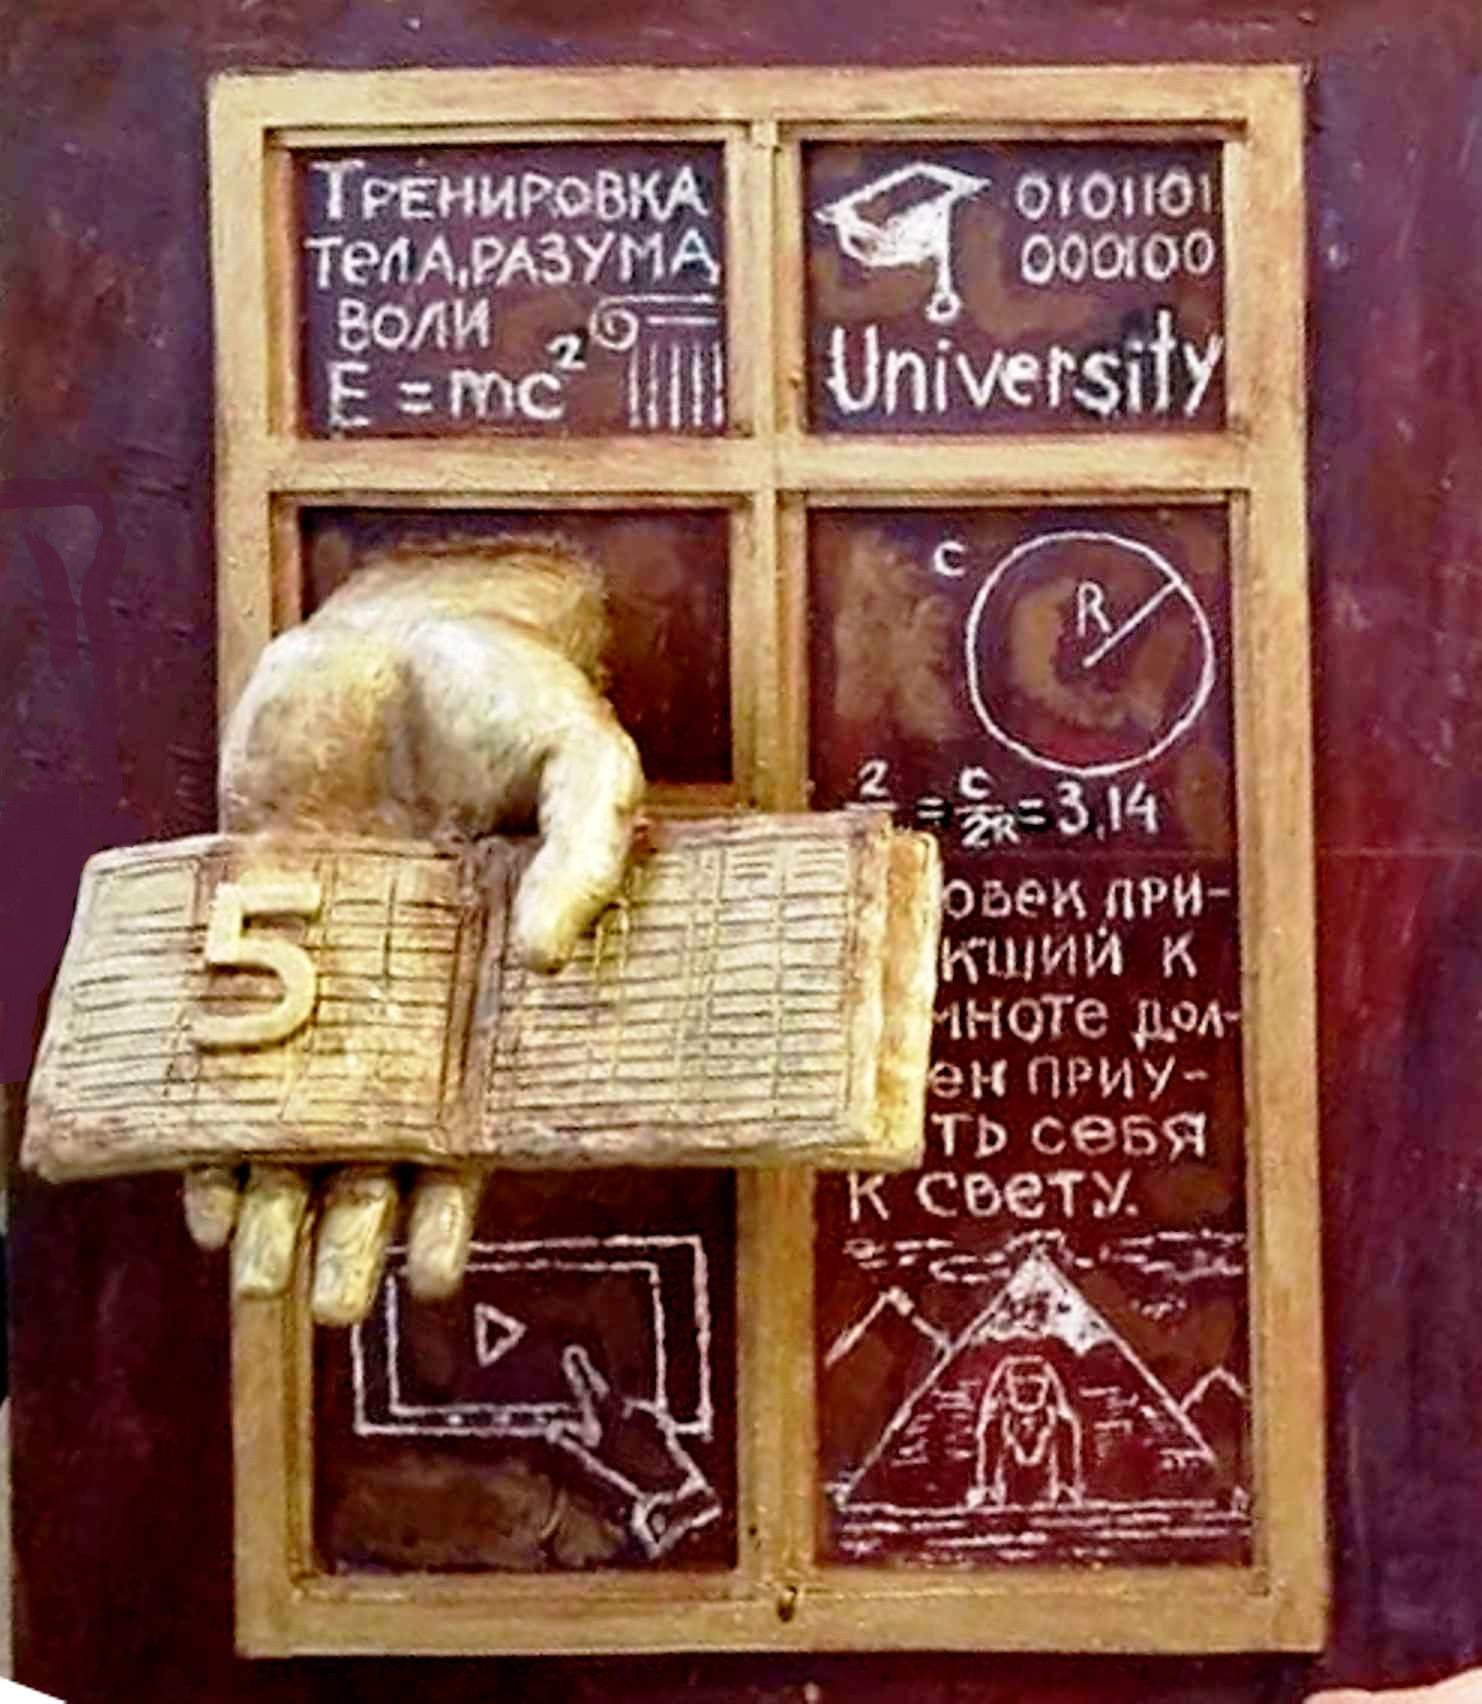 ТРЕНИРОВКА
ТелА,РАЗУМА
ВОЛИ
E = mc²
0101101
000100
University
5
C
R
2 = C/2R = 3,14
овек при-
кший к
мноте дол-
ен приу-
ть себя
к свету.